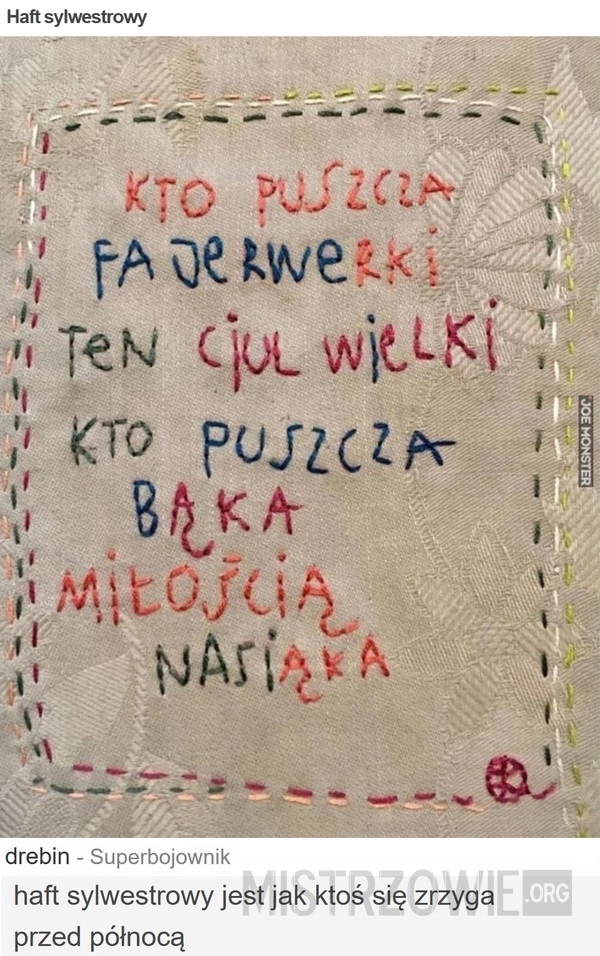 Haft sylwestrowy
KTO PUSZCZA
FAJeRWeRKi
TeN CjUL WjeLKi
KTO PUSZCZA
BĄKA
MiŁOŚCiĄ
NASiĄKA
JOE MONSTER
drebin - Superbojownik
haft sylwestrowy jest jak ktoś się zrzyga
przed północą
MISTRZOWIE.ORG